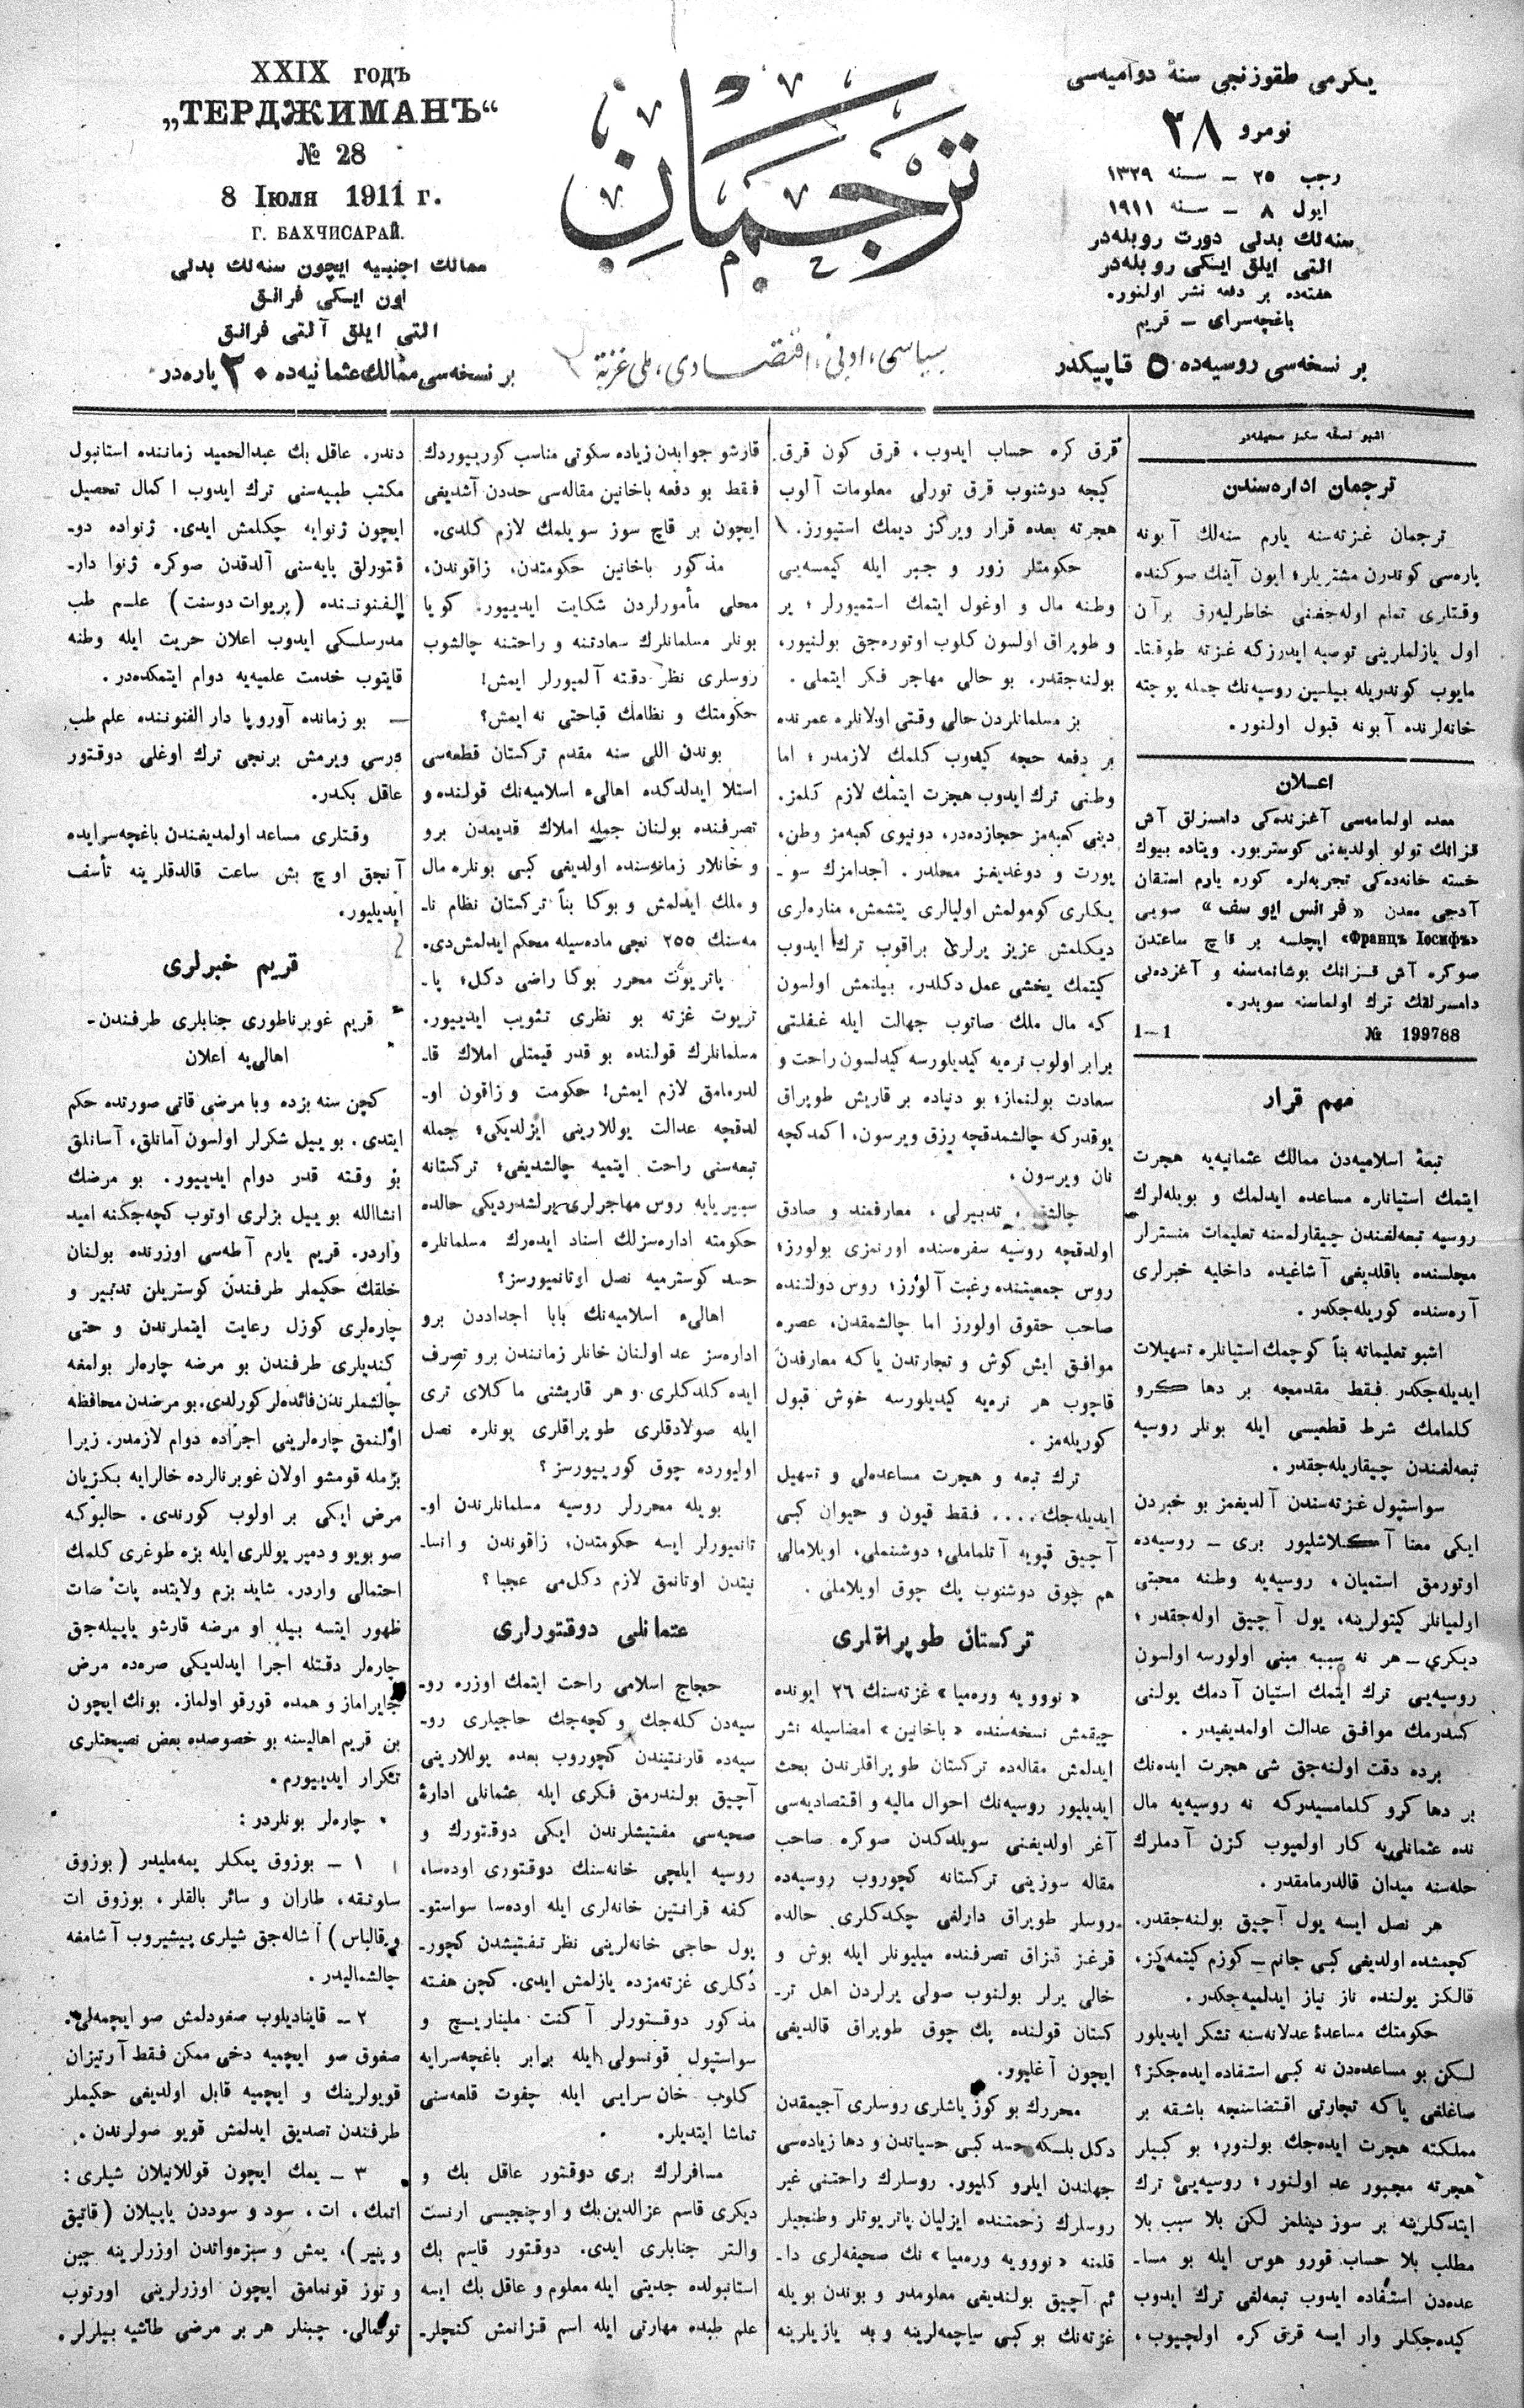 XXIX годъ
„ТЕРДЖИМАНЪ“
№ 28
8 Іюля 1911 г.
Г. БАХЧИСАРАЙ.
ممالك اجنبيه ايچون سنه‌لك بدلى
اون ايكى فرانق
التى ايلق آلتى فرانق
بر نسخه‌سى ممالك عثمانيه‌ده ٣٠ پاره‌در
ترجمان
سياسى، ادبى، اقتصادى، ملى غزته
يكرمى طقوزنجى سنهٔ دواميه‌سى
نومرو ٢٨
رجب ٢٥ – سنه ١٣٢٩
ايول ٨ – سنه ١٩١١
سنه‌لك بدلى دورت روبله‌در
التى ايلق ايكى روبله‌در
هفته‌ده بر دفعه نشر اولنور.
باغچه‌سراى – قريم
بر نسخه‌سى روسيه‌ده ٥ قاپيكدر
اشبو نسخه سكز صحيفه‌در
ترجمان اداره‌سندن
ترجمان غزته‌سنه يارم سنه‌لك آبونه
پاره‌سى كوندرن مشتريلر؛ ايون آينك صوكنده
وقتلرى تمام اوله‌جغنى خاطرليه‌رق بر آن
اول يازلملرينى توصيه ايدرزكه غزته طوقتا‌ـ
مايوب كوندريله بيلسين روسيه‌نك جمله پوچته
خانه‌لرنده آبونه قبول اولنور.
اعلان
معده اولمامه‌سى آغزنده‌كى دامسزلق آش
قزانك تولو اولديغنى كوستريور. ويناده بيوك
خسته خانه‌ده‌كى تجربه‌لره كوره يارم استقان
آدجى معدن «فرانس ايوسف» صويى
«Францъ Іосифъ» ايچلسه بر قاچ ساعتدن
صوكره آش قزانك بوشانمه‌سنه و آغزده‌كى
دامسزلقك ترك اولماسنه سوبدر.
№ 199788 1—1
مهم قرار
تبعهٔ اسلاميه‌دن ممالك عثمانيه‌يه هجرت
ايتمك استيانلره مساعده ايدلمك و بويله‌لرك
روسيه تبعه‌لغندن چيقارلمسنه تعليمات منسترلر
مجلسنده باقلديغى آشاغيده داخليه خبرلرى
آره‌سنده كوريله‌جكدر.
اشبو تعليماته بناً كوچمك استيانلره تسهيلات
ايديله‌جكدر فقط مقدمجه بر دها كرو
كلمامك شرط قطعيسى ايله بونلر روسيه
تبعه‌لغندن چيقاريله‌جقدر.
سواستپول غزته‌سندن آلديغمز بو خبردن
ايكى معنا آكلاشليور برى – روسيه‌ده
اوتورمق استميان، روسيه‌يه وطنه محبتى
اولميانلر كيتولرينه، يول آچيق اوله‌جقدر؛
ديكرى – هر نه سببه مبنى اولورسه اولسون
روسيه‌يى ترك ايتمك استيان آدمك يولنى
كسدرمك موافق عدالت اولمديغيدر.
برده دقت اولنه‌جق شى هجرت ايده‌نك
بر دها كرو كلمامسيدركه نه روسيه‌يه مال
نده عثمانلى‌يه كار اولميوب كزن آدملرك
حله‌سنه ميدان قالدرمامقدر.
هر نصل ايسه يول آچيق بولنه‌جقدر.
كچمشده اولديغى كبى جانم – كوزم كيتمه‌كز،
قالكز يولنده ناز نياز ايدلميه‌جكدر.
حكومتك مساعدهٔ عدلانه‌سنه تشكر ايديلور
لكن بو مساعده‌دن نه كبى استفاده ايده‌جكز؟
صاغلغى ياكه تجارتى اقتضاسنجه باشقه بر
مملكته هجرت ايده‌جك بولنور؛ بو كبيلر
هجرته مجبور عد اولنور؛ روسيه‌يى ترك
ايتدكلرينه بر سوز دينلمز لكن بلا سبب بلا
مطلب بلا حساب قورو هوس ايله بو مسا‌ـ
عده‌دن استفاده ايدوب تبعه‌لغى ترك ايدوب
كيده‌جكلر وار ايسه قرق كره اولچيوب،
قرق كره حساب ايدوب، قرق كون قرق
كيجه دوشنوب قرق تورلى معلومات آلوب
هجرته بعده قرار ويركز ديمك استيورز.
حكومتلر زور و جبر ايله كيمسه‌يى
وطنه مال و اوغول ايتمك استميورلر؛ ير
و طوپراق اولسون كلوب اوتوره‌جق بولنيور،
بولنه‌جقدر. بو حالى مهاجر فكر ايتملى.
بز مسلمانلردن حالى وقتى اولانلره عمرنده
بر دفعه حجه كيدوب كلمك لازمدر؛ اما
وطنى ترك ايدوب هجرت ايتمك لازم كلمز.
دينى كعبه‌مز حجازده‌در، دونيوى كعبه‌مز وطن،
يورت و دوغديغمز محلدر. اجدامزك سو‌ـ
يكلرى كومولمش اوليالرى يتشمش، مناره‌لرى
ديكلمش عزيز يرلرى براقوب ترك ايدوب
كيتمك يخشى عمل دكلدر. بيلنمش اولسون
كه مال ملك صاتوب جهالت ايله غفلتى
برابر اولوب نره‌يه كيديلورسه كيدلسون راحت و
سعادت بولنماز؛ بو دنياده بر قاريش طوپراق
يوقدركه چالشمدقچه رزق ويرسون، اكمدكچه
نان ويرسون.
چالشقن، تدبيرلى، معارفمند و صادق
اولدقچه روسيه سفره‌سنده اورنمزى بولورز؛
روس جمعيتنده رغبت آلورز؛ روس دولتنده
صاحب حقوق اولورز اما چالشمقدن، عصره
موافق ايش كوش و تجارتدن ياكه معارفدن
قاچوب هر نره‌يه كيديلورسه خوش قبول
كوريله‌مز.
ترك تبعه و هجرت مساعده‌لى و تسهيل
ايديله‌جك.... فقط قيون و حيوان كبى
آچيق قپويه آتلماملى؛ دوشنملى، اويلامالى
هم چوق دوشنوب پك چوق اويلاملى.
تركستان طوپراقلرى
«نوويه وره‌ميا» غزته‌سنك ٢٦ ايونده
چيقمش نسخه‌سنده «باخانين» امضاسيله نشر
ايدلمش مقاله‌ده تركستان طوپراقلرندن بحث
ايديليور روسيه‌نك احوال ماليه و اقتصاديه‌سى
آغر اولديغنى سويلدكدن صوكره صاحب
مقاله سوزينى تركستانه كچوروب روسيه‌ده
روسلر طوپراق دارلغى چكدكلرى حالده
قرغز قزاق تصرفنده ميليونلر ايله بوش و
خالى يرلر بولنوب صولى يرلردن اهل تر‌ـ
كستان قولنده پك چوق طوپراق قالديغى
ايچون آغليور.
محررك بو كوز ياشلرى روسلرى آجيمقدن
دكل بلكه حسد كبى حسياتدن و دها زياده‌سى
جهلندن ايلرو كليور. روسلرك راحتنى غير
روسلرك زحمتنده ايزليان پاتريوتلر وطنجيلر
قلمنه «نوويه وره‌ميا» نك صحيفه‌لرى دا‌ـ
ئم آچيق بولنديغى معلومدر و بوندن بويله
غزته‌نك بو كبى سياچمه‌لرينه و بد يازيلرينه
قارشو جوابدن زياده سكوتى مناسب كورييوردك
فقط بو دفعه باخانين مقاله‌سى حددن آشديغى
ايچون بر قاچ سوز سويلمك لازم كلدى.
مذكور باخانين حكومتدن، زاقوندن،
محلى مأمورلردن شكايت ايدييور. كويا
بونلر مسلمانلرك سعادتنه و راحتنه چالشوب
روسلرى نظر دقته آلميورلر ايمش!
حكومتك و نظامك قباحتى نه ايمش؟
بوندن اللى سنه مقدم تركستان قطعه‌سى
استلا ايدلدكده اهالىء اسلاميه‌نك قولنده و
تصرفنده بولنان جمله املاك قديمدن برو
و خانلار زمانه‌سنده اولديغى كبى بونلره مال
و ملك ايدلمش و بوكا بناً تركستان نظام نا‌ـ
مه‌سنك ٢٥٥ نجى ماده‌سيله محكم ايدلمش‌دى.
پاتريوت محرر بوكا راضى دكل؛ پا‌ـ
تريوت غزته بو نظرى تثويب ايدييور.
مسلمانلرك قولنده بو قدر قيمتلى املاك قا‌ـ
لدرمامق لازم ايمش! حكومت و زاقون او‌ـ
لدقچه عدالت يوللارينى ايزلديكى؛ جمله
تبعه‌سنى راحت ايتميه چالشديغى؛ تركستانه
سيبريايه روس مهاجرلرى يرلشدرديكى حالده
حكومته اداره‌سزلك اسناد ايده‌رك مسلمانلره
حسد كوسترميه نصل اوتانميورسز؟
اهالىء اسلاميه‌نك بابا اجداددن برو
اداره‌سز عد اولنان خانلر زمانندن برو تصرف
ايده كلدكلرى و هر قاريشنى ماكلاى ترى
ايله صولادقلرى طوپراقلرى بونلره نصل
اوليورده چوق كورييورسز؟
بويله محررلر روسيه مسلمانلرندن او‌ـ
تانميورلر ايسه حكومتدن، زاقوندن و انسا‌ـ
نيتدن اوتانمق لازم دكل‌مى عجبا؟
عثمانلى دوقتورلرى
حجاج اسلامى راحت ايتمك اوزره رو‌ـ
سيه‌دن كله‌جك و كچه‌جك حاجيلرى رو‌ـ
سيه‌ده قارنتيندن كچوروب بعده يوللارينى
آچيق بولندرمق فكرى ايله عثمانلى ادارهٔ
صحيه‌سى مفتيشلرندن ايكى دوقتورك و
روسيه ايلچى خانه‌سنك دوقتورى اوده‌سا،
كفه قرانتين خانه‌لرى ايله اوده‌سا سواستو‌ـ
پول حاجى خانه‌لرينى نظر تفتيشدن كچور‌ـ
دكلرى غزته‌مزده يازلمش ايدى. كچن هفته
مذكور دوقتورلر آكنت مليناريچ و
سواستپول قونسولى ايله برابر باغچه‌سرايه
كلوب خان سرايى ايله چفوت قلعه‌سنى
تماشا ايتديلر.
مسافرلرك برى دوقتور عاقل بك و
ديكرى قاسم عزالدين بك و اوچنجيسى ارنست
والتر جنابلرى ايدى. دوقتور قاسم بك
استانبولده جديتى ايله معلوم و عاقل بك ايسه
علم طبده مهارتى ايله اسم قزانمش كنچلر‌ـ
دندر. عاقل بك عبدالحميد زماننده استانبول
مكتب طبيه‌سنى ترك ايدوب اكمال تحصيل
ايچون ژنوايه چكلمش ايدى. ژنواده دو‌ـ
قتورلق پايه‌سنى آلدقدن صوكره ژنوا دار‌ـ
الفنوننده (پريوات دوسنت) علم طب
مدرسلكى ايدوب اعلان حريت ايله وطنه
قايتوب خدمت علميه‌يه دوام ايتمكده‌در.
— بو زمانده آوروپا دار الفنوننده علم طب
درسى ويرمش برنجى ترك اوغلى دوقتور
عاقل بكدر.
وقتلرى مساعد اولمديغندن باغچه‌سرايده
آنجق اوچ بش ساعت قالدقلرينه تأسف
ايديليور.
قريم خبرلرى
قريم غوبرناطورى جنابلرى طرفندن‌ـ
اهالى‌يه اعلان
كچن سنه بزده وبا مرضى قاتى صورتده حكم
ايتدى. بو ييل شكرلر اولسون آمانلق، آسانلق
بو وقته قدر دوام ايدييور. بو مرضك
انشاالله بو ييل بزلرى اوتوب كچه‌جكنه اميد
واردر. قريم يارم آطه‌سى اوزرنده بولنان
خلقك حكيملر طرفندن كوستريلن تدبير و
چاره‌لرى كوزل رعايت ايتملرندن و حتى
كنديلرى طرفندن بو مرضه چاره‌لر بولمغه
چالشملرندن فائده‌لر كورلدى. بو مرضدن محافظه
اولنمق چاره‌لرينى اجراده دوام لازمدر. زيرا
بزمله قومشو اولان غوبرنالرده خالرايه بكزيان
مرض ايكى بر اولوب كورندى. حالبوكه
صو بويو و دمير يوللرى ايله بزه طوغرى كلمك
احتمالى واردر. شايد بزم ولايتده پات ضات
ظهور ايتسه بيله او مرضه قارشو ياپيله‌جق
چاره‌لر دقتله اجرا ايدلديكى صره‌ده مرض
جايراماز و همده قورقو اولماز. بونك ايچون
بن قريم اهاليسنه بو خصوصده بعض نصيحتلرى
تكرار ايدييورم.
چاره‌لر بونلردر:
١ – بوزوق يمكلر يمه‌مليدر (بوزوق
ساوتقه، طاران و سائر بالقلر، بوزوق ات
و قالباس) آشاله‌جق شيلرى پيشيروب آشامغه
چالشماليدر.
٢ – قايناديلوب صغودلمش صو ايچمه‌لى.
صغوق صو ايچميه دخى ممكن فقط آرتيزان
قويولرينك و ايچميه قابل اولديغى حكيملر
طرفندن تصديق ايدلمش قويو صولرندن.
٣ – يمك ايچون قوللانيلان شيلرى:
اتمك، ات، سود و سوددن ياپيلان (قاتيق
و پنير)، يمش و سبزه‌واتدن اوزرلرينه چبن
و توز قونمامق ايچون اوزرلرينى اورتوب
توتمالى. چبنلر هر بر مرضى طاشيه بيلرلر.